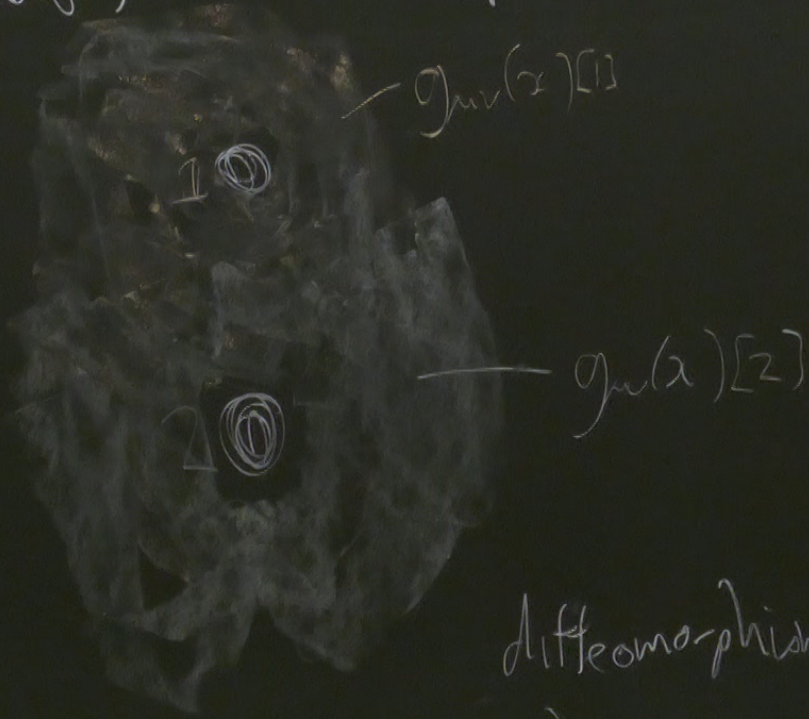 g_{μν}(x)[1]
1
g_{μν}(x)[2]
2
diffeomorphism